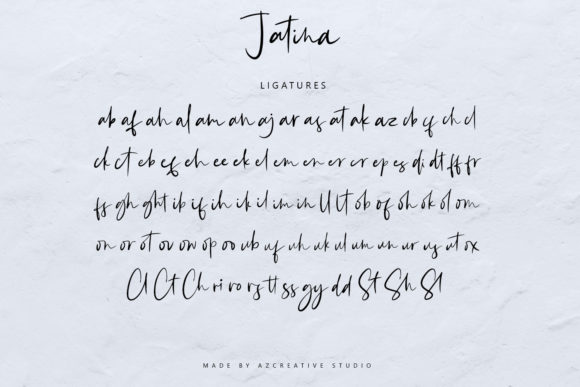 Jatina
LIGATURES
ab af ah al am an aj ar as at ak az cb cf ch cl
ck ct eb ef eh ee ek el em en er cr ep es di dt ff fr
fs gh ght ib if ih ik il im in ll lt ob of oh ok ol om
on or ot ov ow op oo ub uf uh uk ul um un ur us ut ox
Cl Ct Ch ri ro rs tt ss gy dd St Sh Sl
MADE BY AZCREATIVE STUDIO